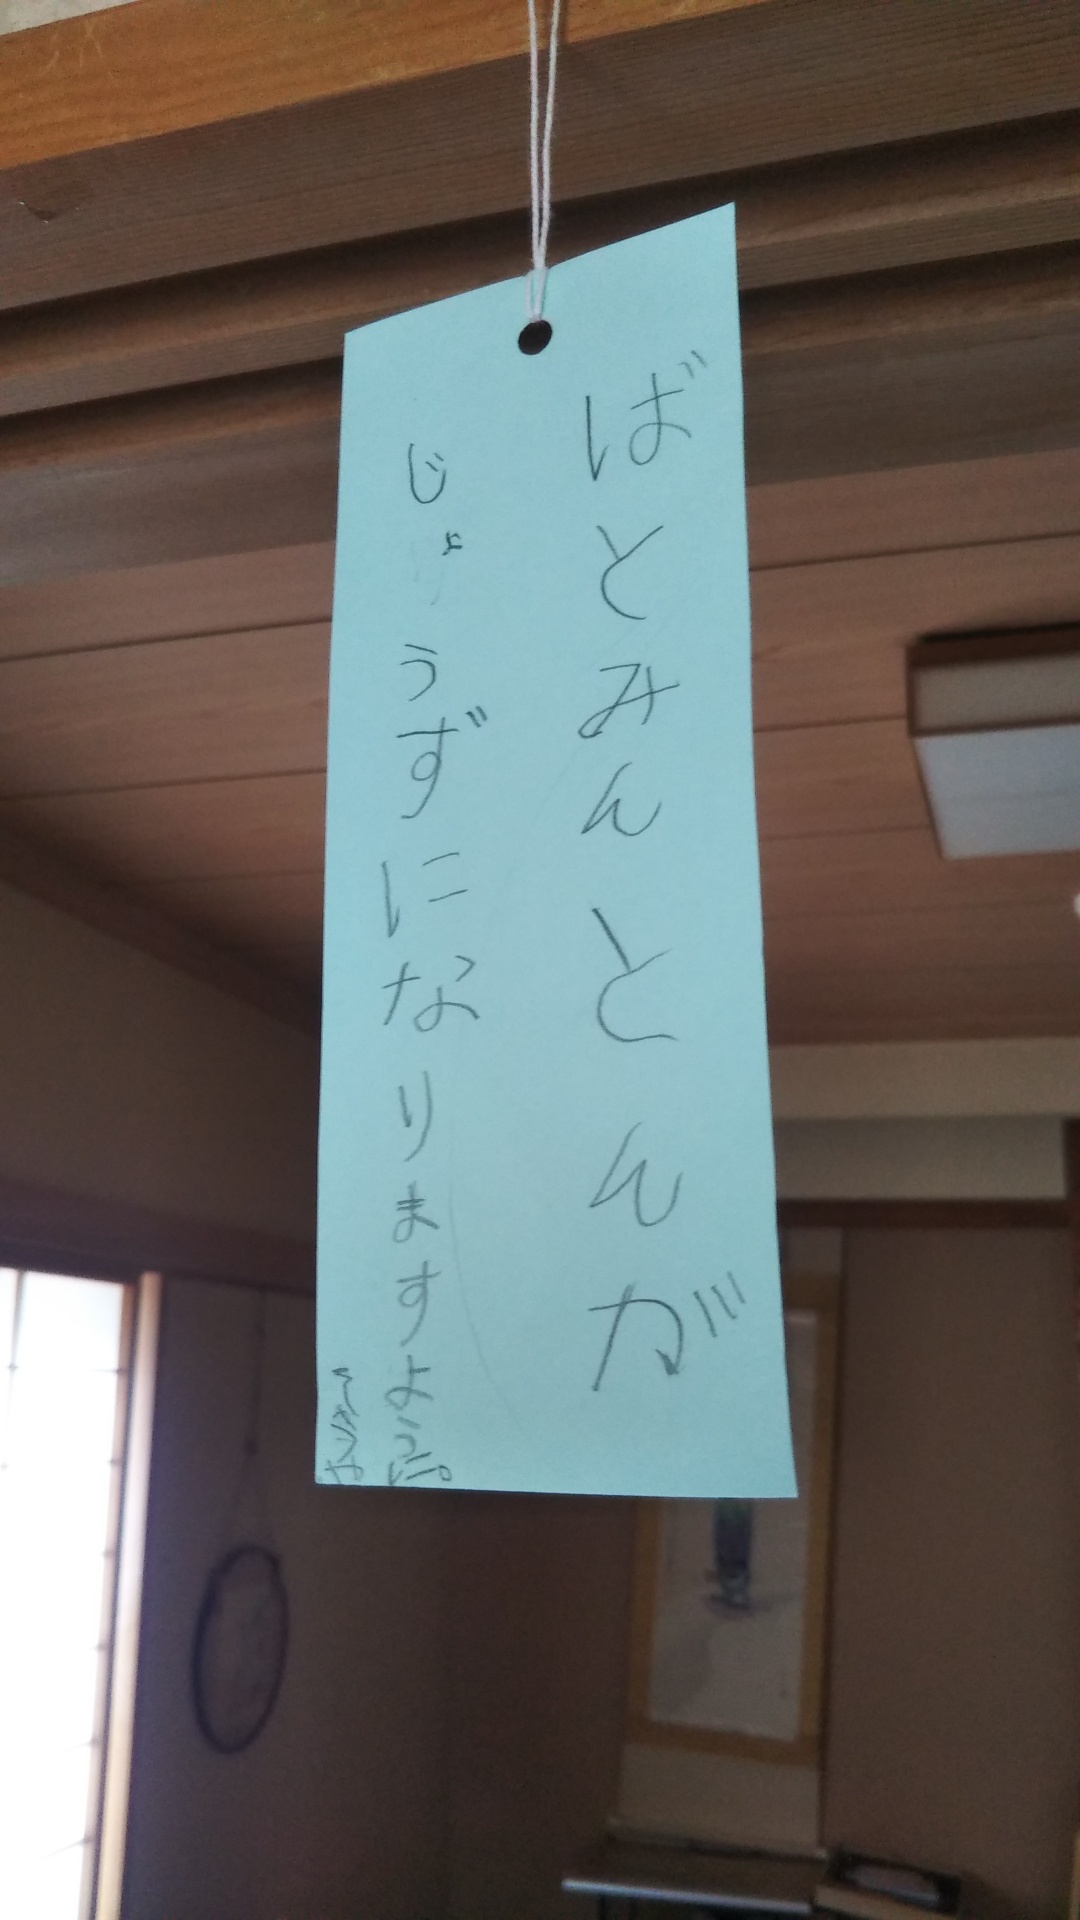 ばとみんとんが
じょうずになりますように